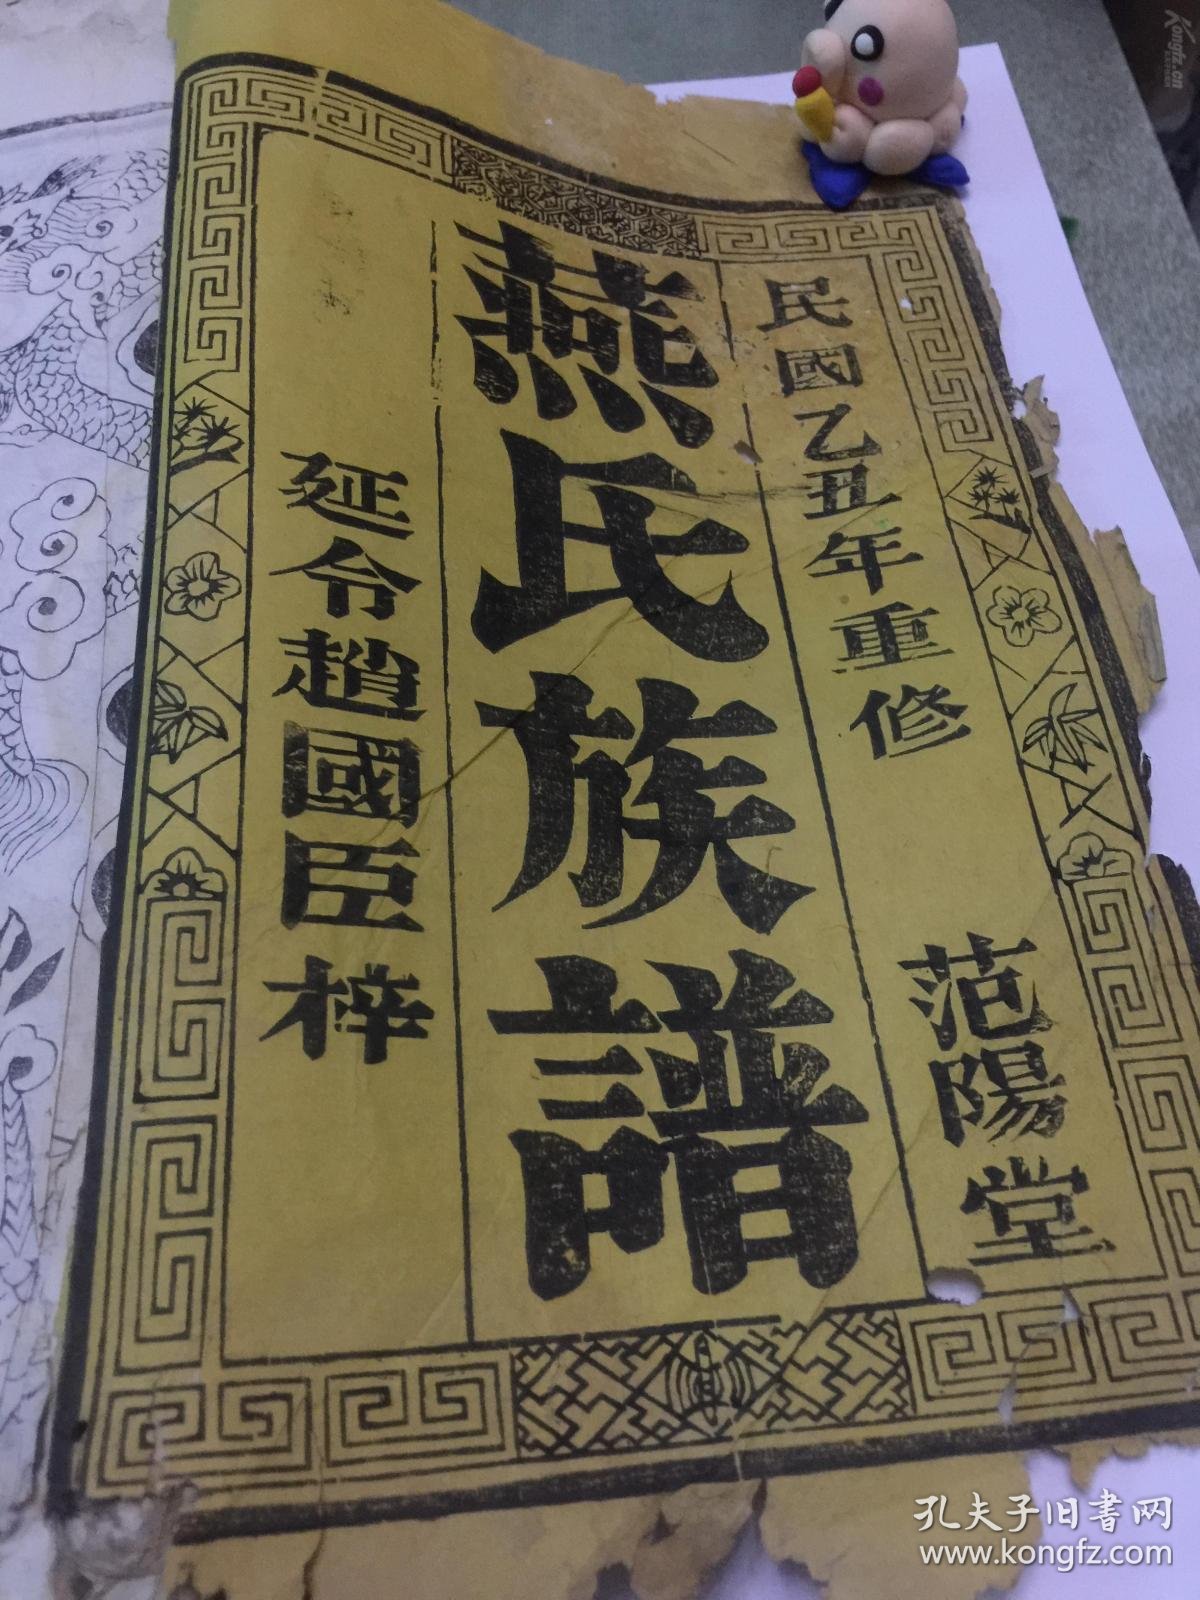 民國乙丑年重修
范陽堂
燕氏族譜
延令趙國臣梓
孔夫子旧書网
www.kongfz.com
Kongfz.cn